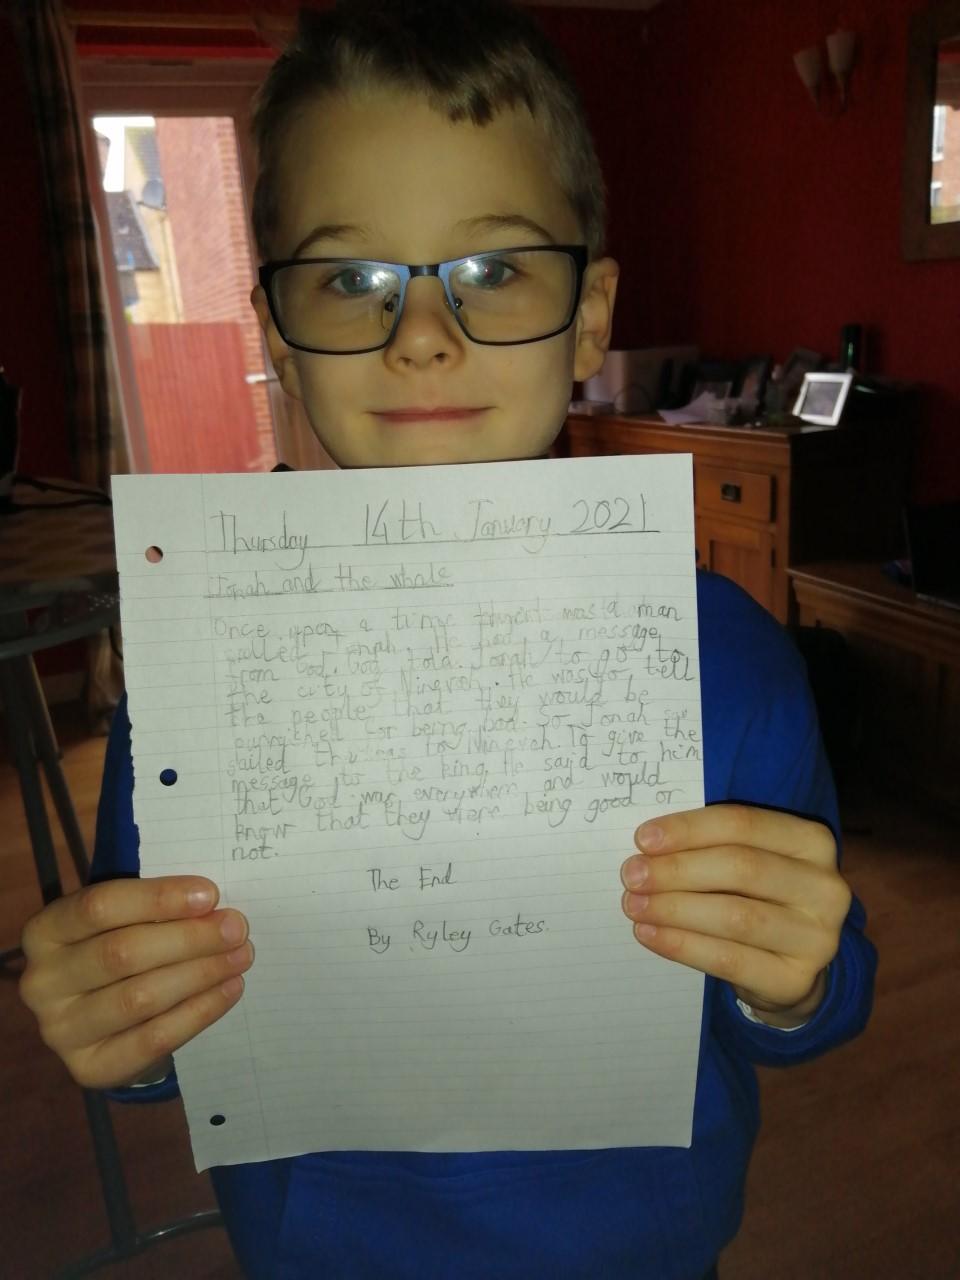 Thursday 14th January 2021
Jonah and the whale
Once upon a time was a man
called Jonah. He had a message
from God. God told Jonah to go to
the city of Ninevah. He was to tell
the people that they would be
for being bad. So Jonah
sailed to Ninevah. To give the
message to the king. He said to him
that God was everywhere and would
know that they were being good or
not.
The End
By Ryley Gates.